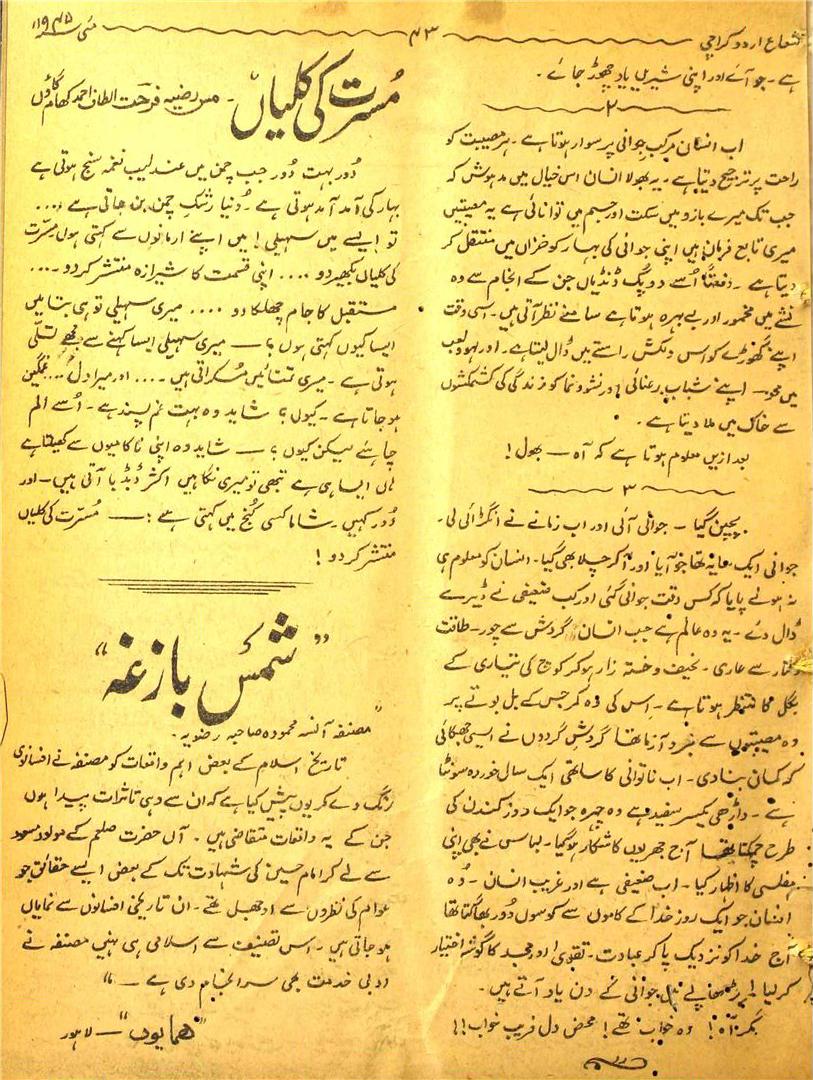 شعاع اردو کراچی
۴۳
مئی ۱۹۴۵ء
ہے۔ جو آئے اور اپنی شیریں یاد چھوڑ جائے۔
۲
اب انسان مرکب جوانی پر سوار ہوتا ہے۔ ہر مصیبت کو
راحت پر ترجیح دیتا ہے۔ یہ بھولا انسان اس خیال میں مدہوش کہ
جب تک میرے بازو میں سکت اور جسم میں توانائی ہے یہ مصیبتیں
میری تابع فرمان ہیں اپنی جوانی کی بہار کو خزاں میں منتقل کر
دیتا ہے۔ دفعتاً اُسے دو پگ ڈنڈیاں جن کے انجام سے وہ
نشے میں مخمور اور بے بہرہ ہوتا ہے سامنے نظر آتی ہیں۔ اسی وقت
اپنے گھوڑے کو اس دلکش راستے میں ڈال لیتا ہے۔ اور لہو و لعب
میں محو۔ اپنے شباب رعنائی اور نشو و نما کو زندگی کی کشمکشوں
سے خاک میں ملا دیتا ہے۔
بعد ازیں معلوم ہوتا ہے کہ آہ — بھول!
۳
بچپن گیا۔ جوانی آئی اور اب زمانے نے انگڑائی لی۔
جوانی ایک سایہ تھا جو آیا اور آکر چلا بھی گیا۔ انسان کو معلوم ہی
نہ ہونے پایا کہ کس وقت جوانی گئی اور کب ضعیفی نے ڈیرے
ڈال دئے۔ یہ وہ عالم ہے جب انسان گردش سے چور۔ طاقت
رفتار سے عاری۔ نحیف و خستہ زار ہو کر کوچ کی تیاری کے
بگل کا منتظر ہوتا ہے۔ اس کی وہ کمر جس کے بل بوتے پر
وہ مصیبتوں سے نبرد آزما تھا گردشِ گردوں نے ایسی جھکائی
کہ کمان بنا دی۔ اب ناتوانی کا ساتھی ایک سال خوردہ سونٹا
ہے۔ داڑھی یکسر سفید ہے وہ چہرہ جو ایک روز کندن کی
طرح چمکتا تھا آج جھریوں کا شکار ہو گیا۔ لباس نے بھی اپنی
مفلسی کا اظہار کیا۔ اب ضعیفی ہے اور غریب انسان۔ وہ
انسان جو ایک روز خدا کے کاموں سے کوسوں دُور بھاگتا تھا
آج خدا کو نزدیک پا کر عبادت۔ تقویٰ اور مسجد کا گوشہ اختیار
کر لیا! بڑھاپے میں جوانی کے دن یاد آتے ہیں۔
مگر آہ! وہ خواب تھے! محض دل فریب خواب!!
مُسرت کی کلیاں
مس رضیہ فرحت الطاف احمد کھام گاؤں
دُور بہت دُور جب چمن میں عندلیب نغمہ سنج ہوتی ہے
بہار کی آمد آمد ہوتی ہے۔ دُنیا رشکِ چمن بن جاتی ہے ....
تو ایسے میں سہیلی! میں اپنے ارمانوں سے کہتی ہوں مسرت
کی کلیاں بکھیر دو .... اپنی قسمت کا شیرازہ منتشر کر دو ....
مستقبل کا جام چھلکا دو .... میری سہیلی تو ہی بتا میں
ایسا کیوں کہتی ہوں؟ — میری سہیلی ایسا کہنے سے مجھے تسلّی
ہوتی ہے۔ میری تمنائیں مُسکراتی ہیں .... اور میرا دل .... غمگین
ہو جاتا ہے۔ کیوں؟ شاید وہ بہت غم پسند ہے۔ اُسے الم
چاہئے لیکن کیوں؟ — شاید وہ اپنی ناکامیوں سے کھیلتا ہے
ہاں ایسا ہی ہے تبھی تو میری نگاہیں اکثر ڈبڈبا آتی ہیں — اور
دُور کہیں۔ شاما کسی کُنج میں کہتی ہے؛ — مُسرت کی کلیاں
منتشر کر دو!
”شمس بازغہ“
”مصنفہ آنسہ محمودہ صاحبہ رضویہ۔
تاریخ اسلام کے بعض اہم واقعات کو مصنفہ نے افسانوی
رنگ دے کر یوں پیش کیا ہے کہ ان سے وہی تاثرات پیدا ہوں
جن کے یہ واقعات متقاضی ہیں۔ آں حضرت صلعم کے مولود مسعود
سے لے کر امام حسین کی شہادت تک کے بعض ایسے حقائق جو
عوام کی نظروں سے اوجھل تھے۔ ان تاریخی افسانوں سے نمایاں
ہو جاتی ہیں۔ اس تصنیف سے اسلامی ہی نہیں مصنفہ نے
ادبی خدمت بھی سرانجام دی ہے — “
”ہمایوں“ — لاہور